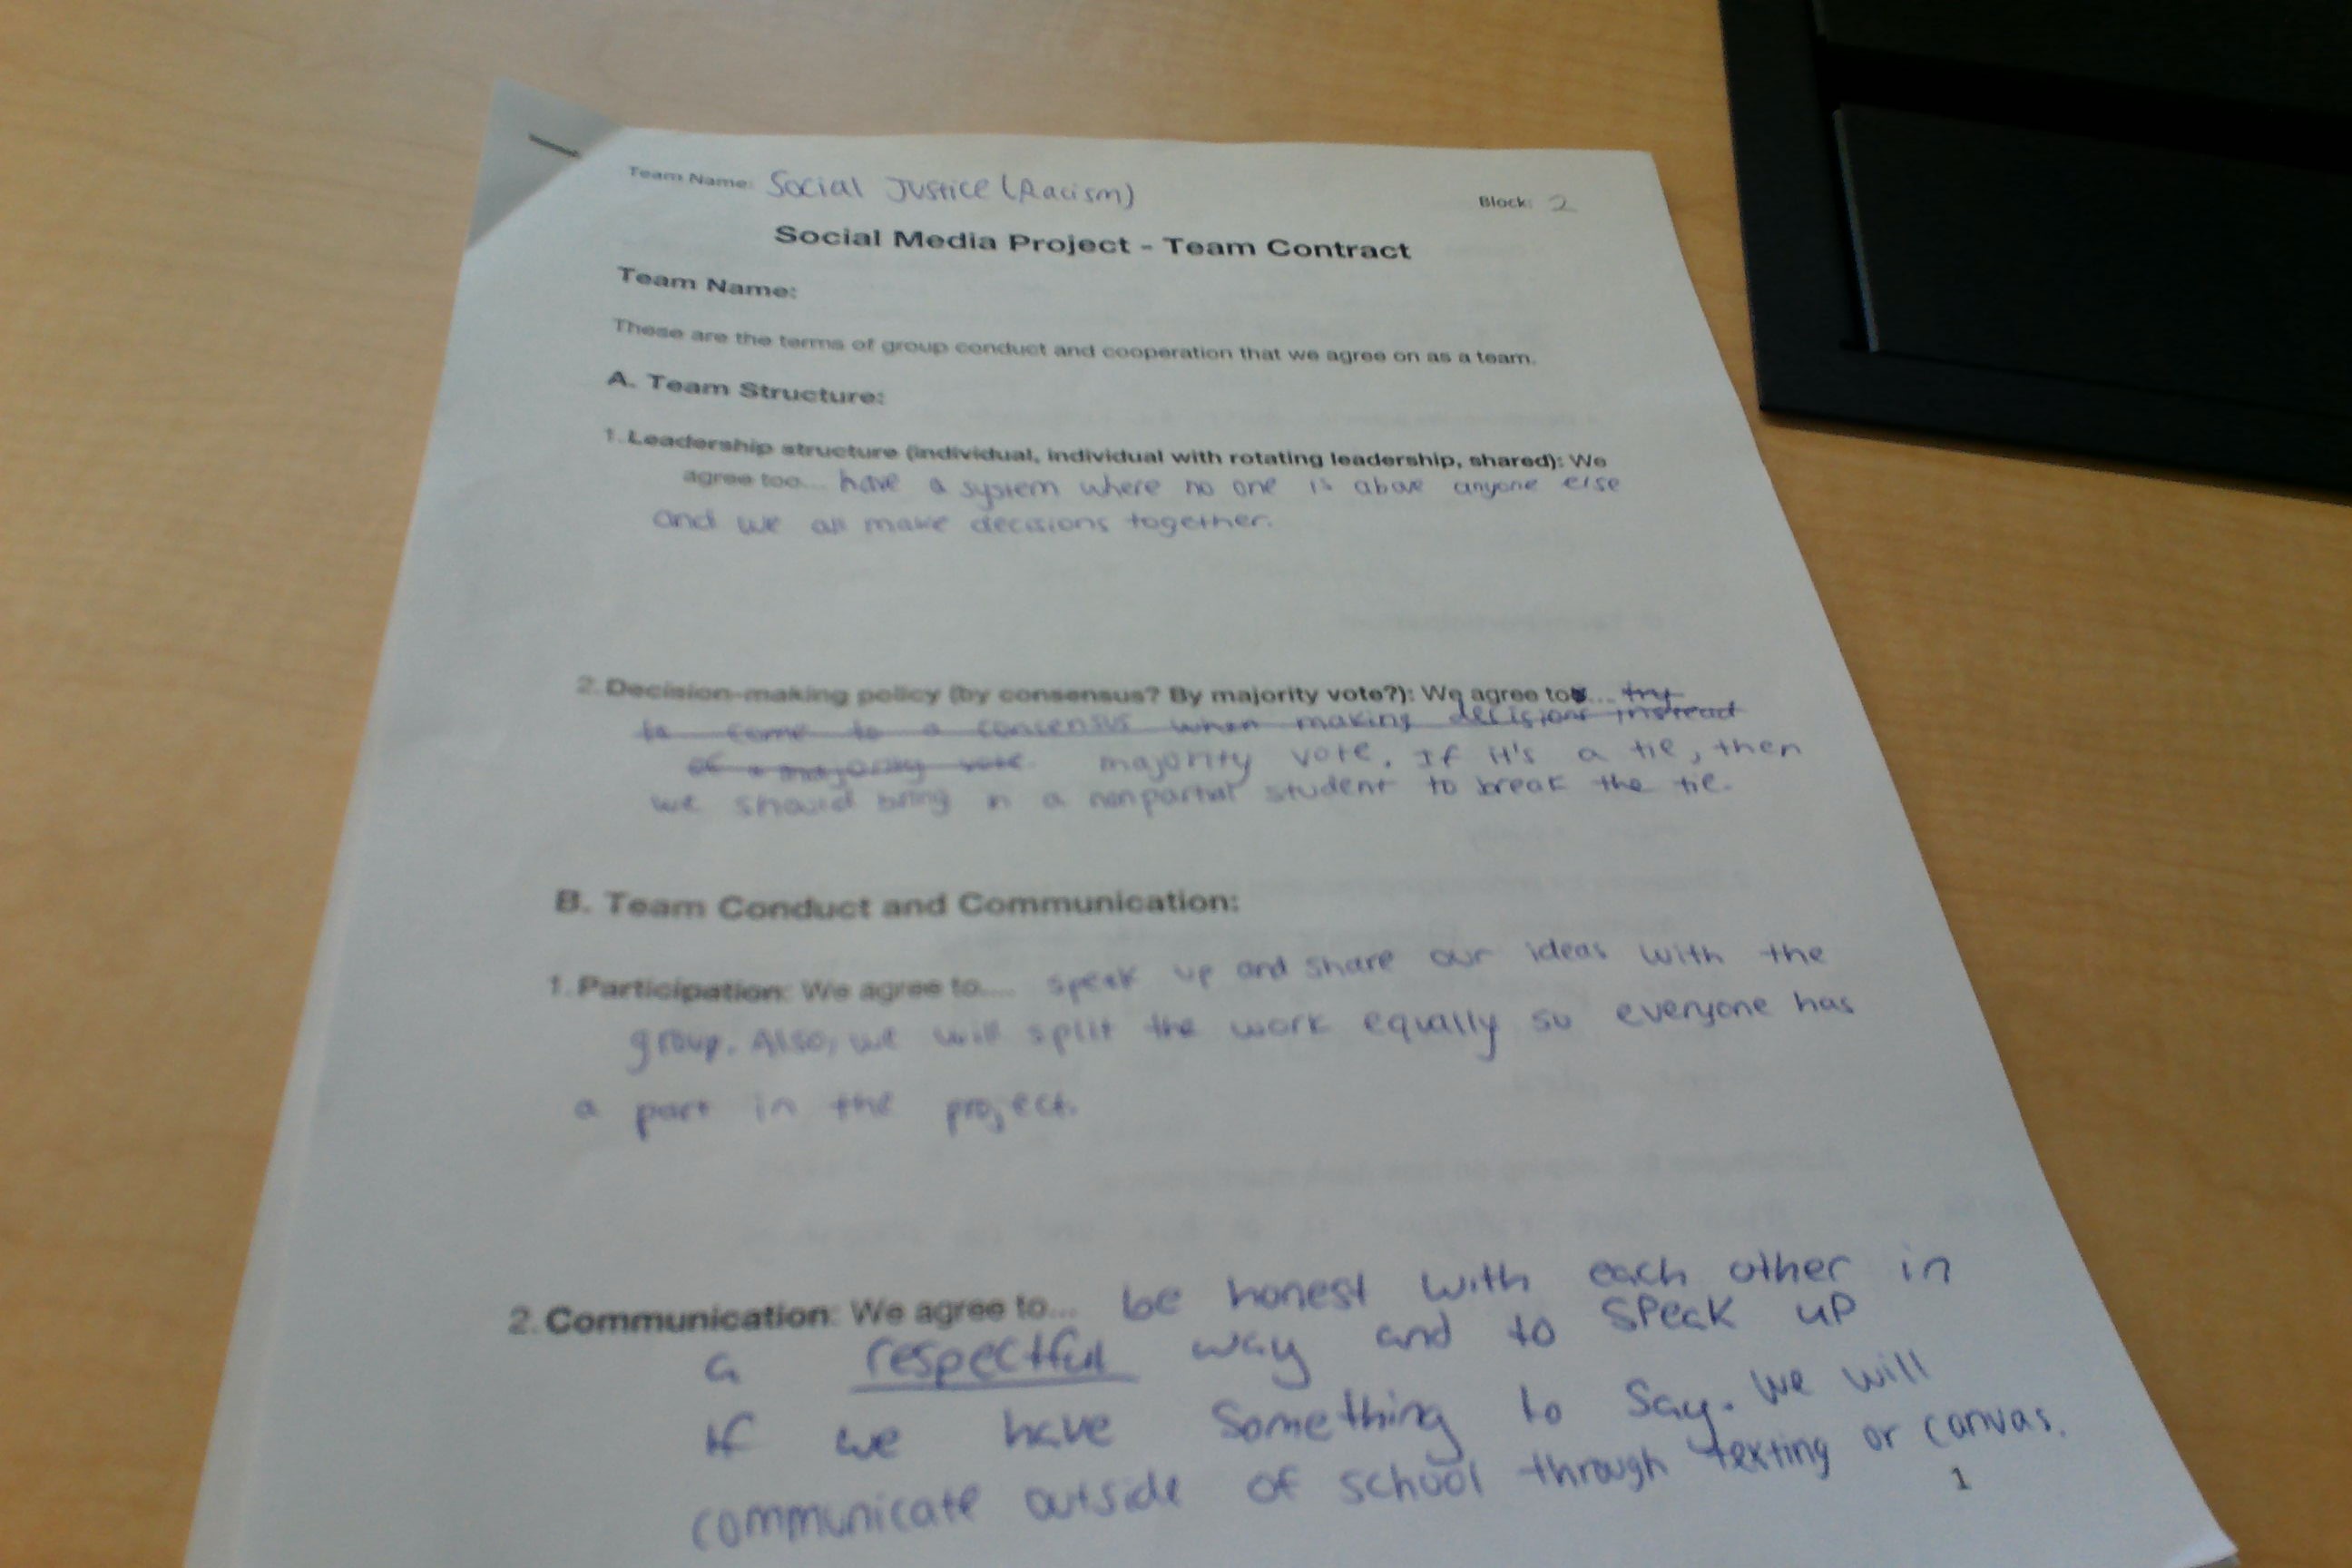 Team Name: Social Justice (Racism)
Block: 2
Social Media Project - Team Contract
Team Name:
These are the terms of group conduct and cooperation that we agree on as a team.
A. Team Structure:
1. Leadership structure (individual, individual with rotating leadership, shared): We
agree too... have a system where no one is above anyone else
and we all make decisions together.
2. Decision-making policy (by consensus? By majority vote?): We agree to... try
to come to a consensus when making decisions instead
of a majority vote majority vote. If it's a tie, then
we should bring in a nonpartial student to break the tie.
B. Team Conduct and Communication:
1. Participation: We agree to.... speak up and share our ideas with the
group. Also, we will split the work equally so everyone has
a part in the project.
2. Communication: We agree to... be honest with each other in
a respectful way and to speak up
if we have something to say. We will
communicate outside of school through texting or canvas.
1